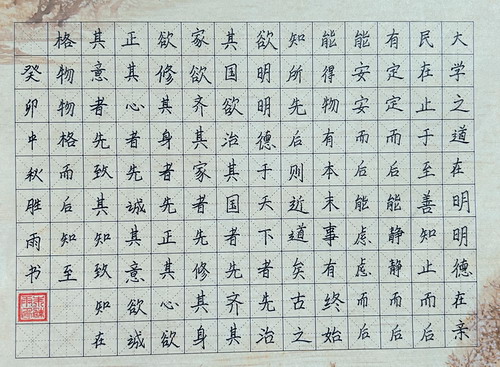 大学之道在明明德在亲
民在止于至善知止而后
有定定而后能静静而后
能安安而后能虑虑而后
能得物有本末事有终始
知所先后则近道矣古之
欲明明德于天下者先治
其国欲治其国者先齐其
家欲齐其家者先修其身
欲修其身者先正其心欲
正其心者先诚其意欲诚
其意者先致其知致知在
格物物格而后知至
癸卯中秋胜雨书